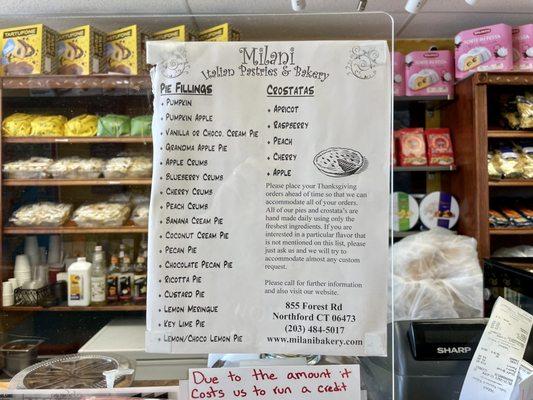 Milani
Italian Pastries & Bakery
Pie Fillings
Pumpkin
Pumpkin Apple
Vanilla or Choco. Cream Pie
Grandma Apple Pie
Apple Crumb
Blueberry Crumb
Cherry Crumb
Peach Crumb
Banana Cream Pie
Coconut Cream Pie
Pecan Pie
Chocolate Pecan Pie
Ricotta Pie
Custard Pie
Lemon Meringue
Key Lime Pie
Lemon/Choco Lemon Pie
Crostatas
Apricot
Raspberry
Peach
Cherry
Apple
Please place your Thanksgiving
orders ahead of time so that we can
accommodate all of your orders.
All of our pies and crostata's are
hand made daily using only the
freshest ingredients. If you are
interested in a particular flavor that
is not mentioned on this list, please
just ask us and we will try to
accommodate almost any custom
request.
Please call for further information
and also visit our website.
855 Forest Rd
Northford CT 06473
(203) 484-5017
www.milanibakery.com
Due to the amount it
Costs us to run a credit
SHARP
TARTUFONE